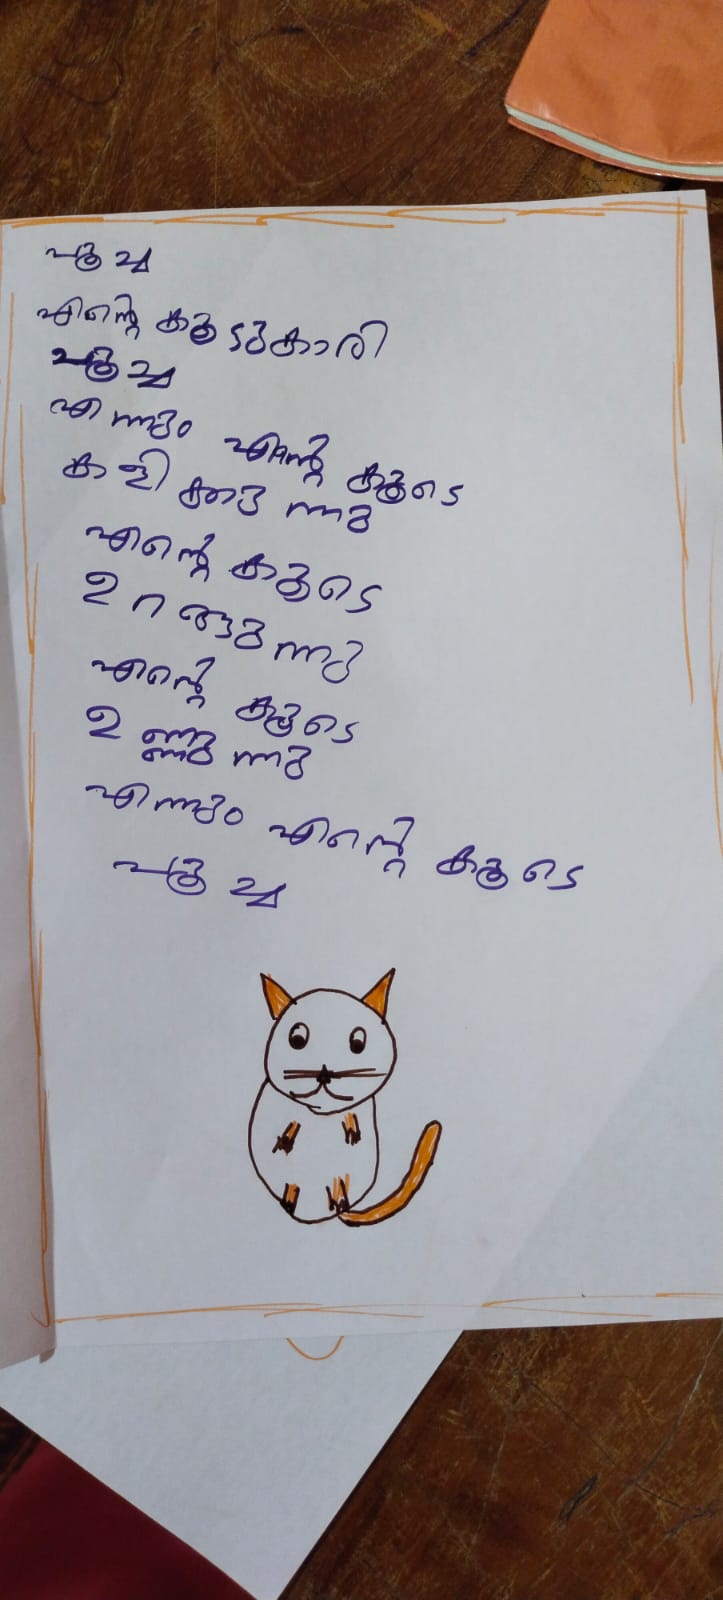 പൂച്ച
എന്റെ കൂടുകാരി
പൂച്ച
എന്നും എന്റെ കൂടെ
കളിക്കുന്നു
എന്റെ കൂടെ
ഉറങ്ങുന്നു
എന്റെ കൂടെ
ഉണ്ണുന്നു
എന്നും എന്റെ കൂടെ
പൂച്ച